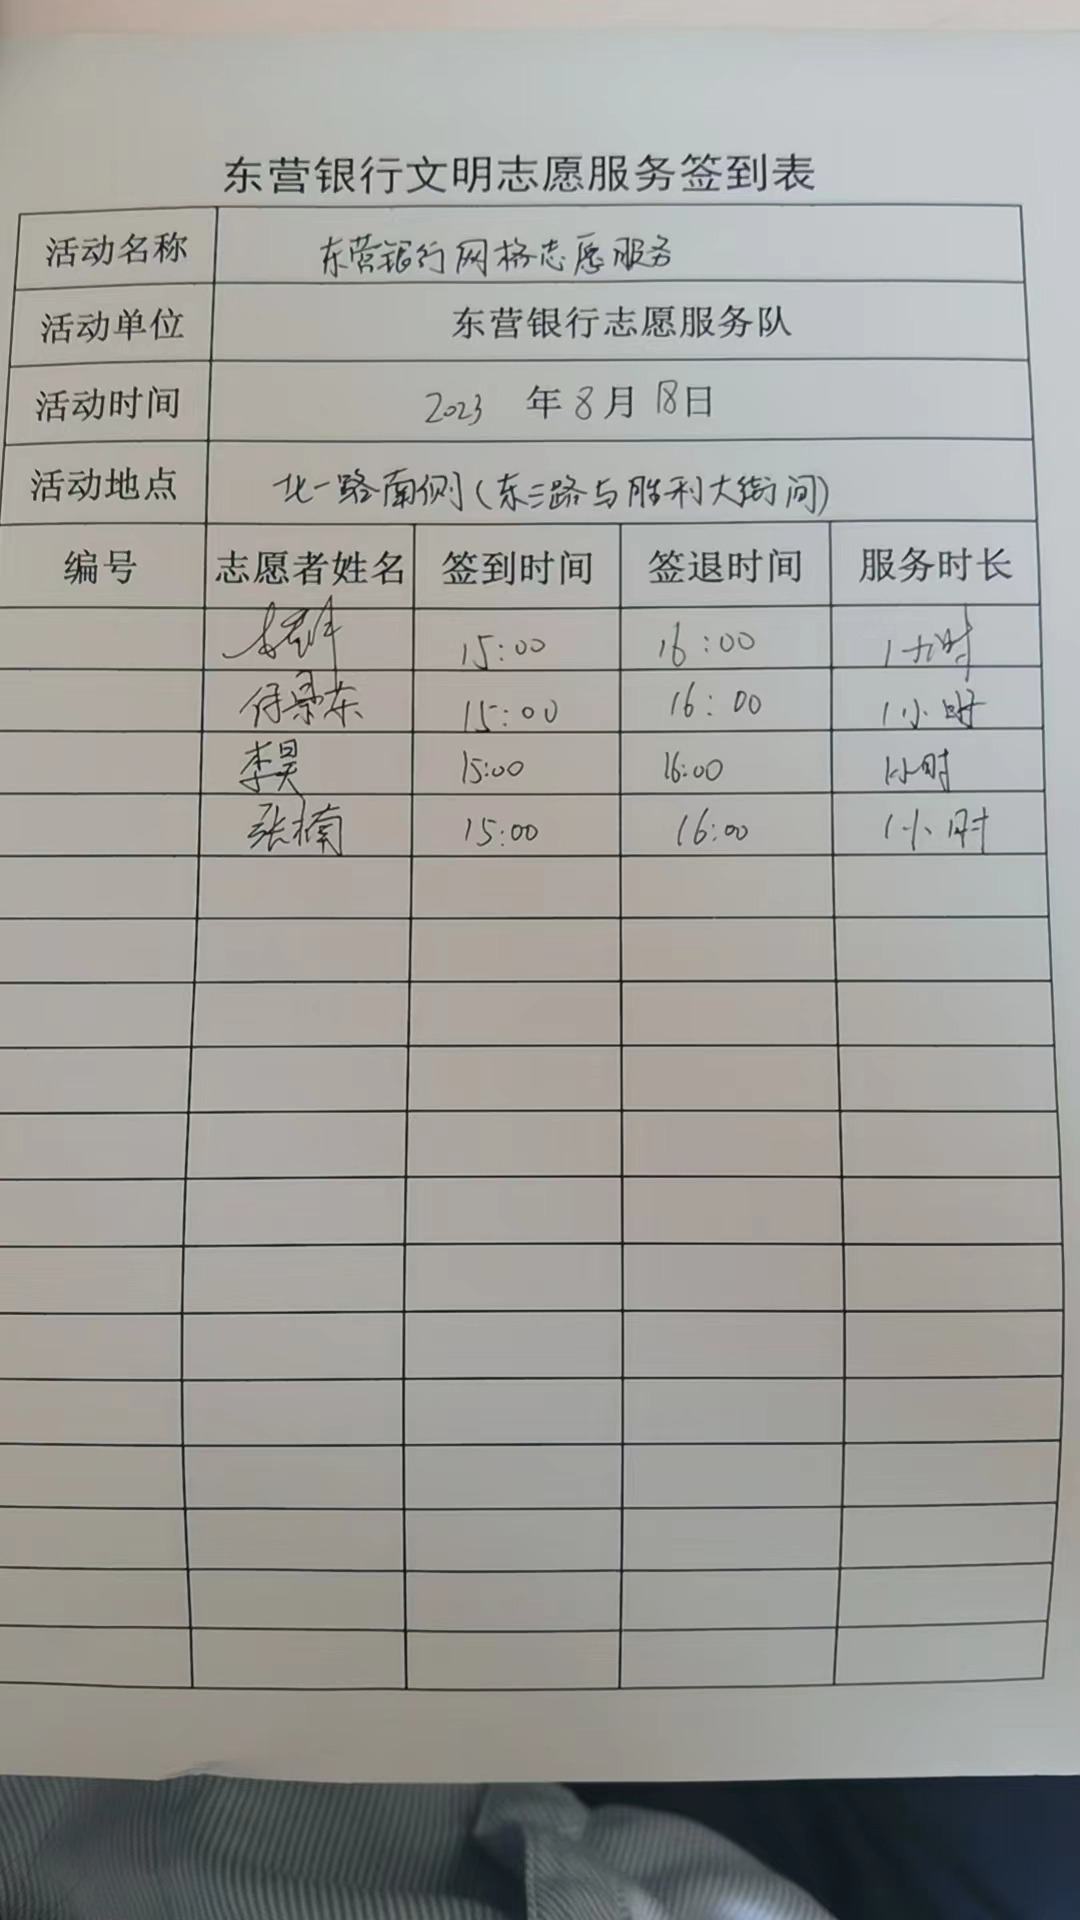 东营银行文明志愿服务签到表
活动名称 东营银行网格志愿服务
活动单位 东营银行志愿服务队
活动时间 2023 年 8 月 18 日
活动地点 北一路南侧(东三路与胜利大街间)
编号 志愿者姓名 签到时间 签退时间 服务时长
15:00 16:00 1小时
付景东 15:00 16:00 1小时
李昊 15:00 16:00 1小时
张楠 15:00 16:00 1小时